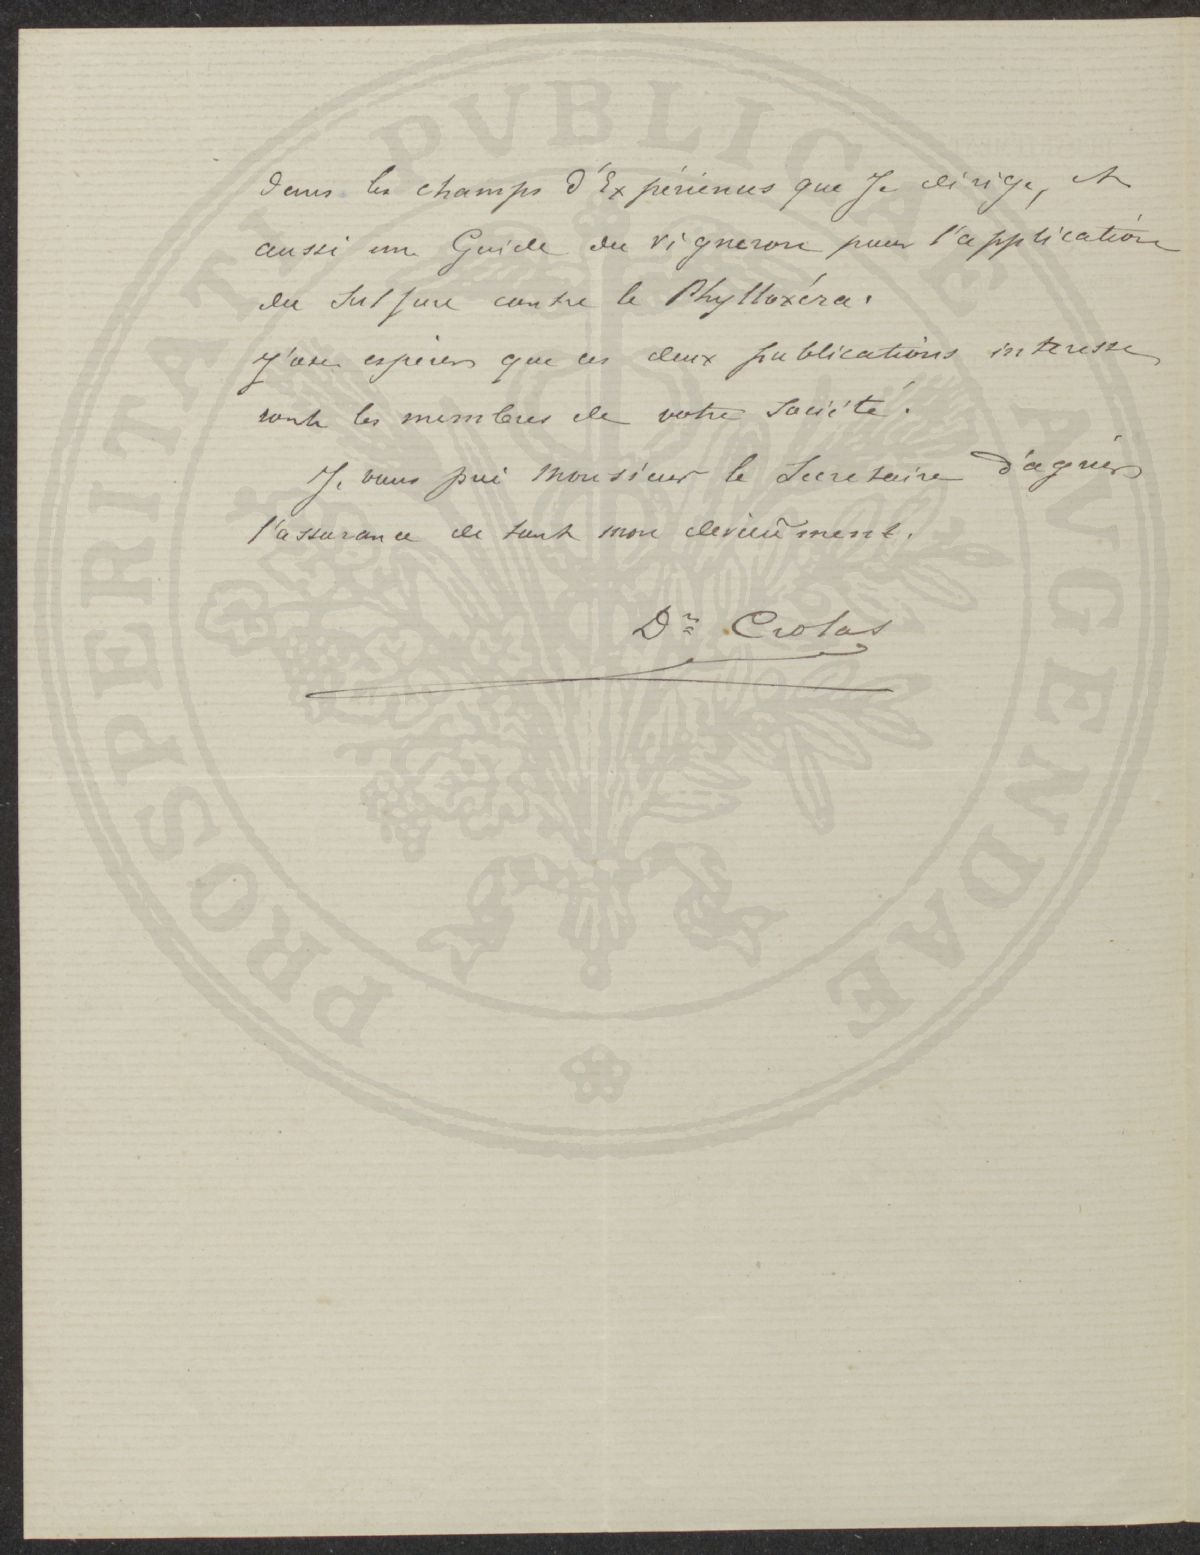 dans les champs d'Expériences que Je dirige, et
aussi un Guide du vigneron pour l'application
du Sulfure contre le Phylloxéra.
J'ose espérer que ces deux publications interesse
ront les membres de votre Société.
Je vous prie Monsieur le Secretaire d'agréer
l'assurance de tout mon dévouement.
Dr Crolas
PROSPERITATI PVBLICAE AVGENDAE